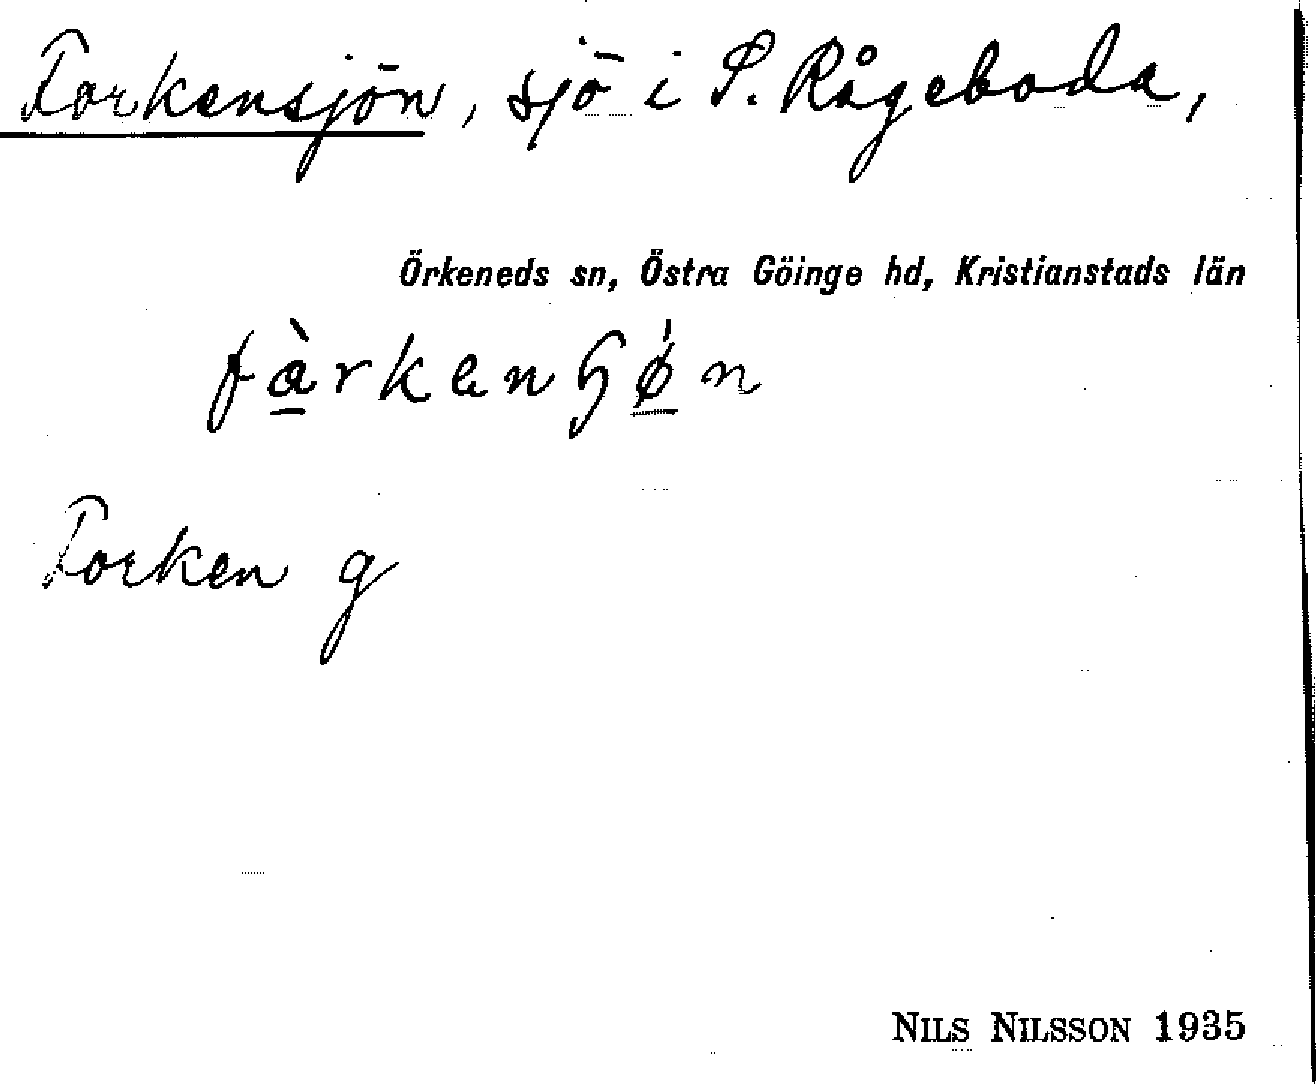 Forkensjön, sjö i S. Rågeboda,
Örkeneds sn, Östra Göinge hd, Kristianstads län
Forken g
NILS NILSSON 1935